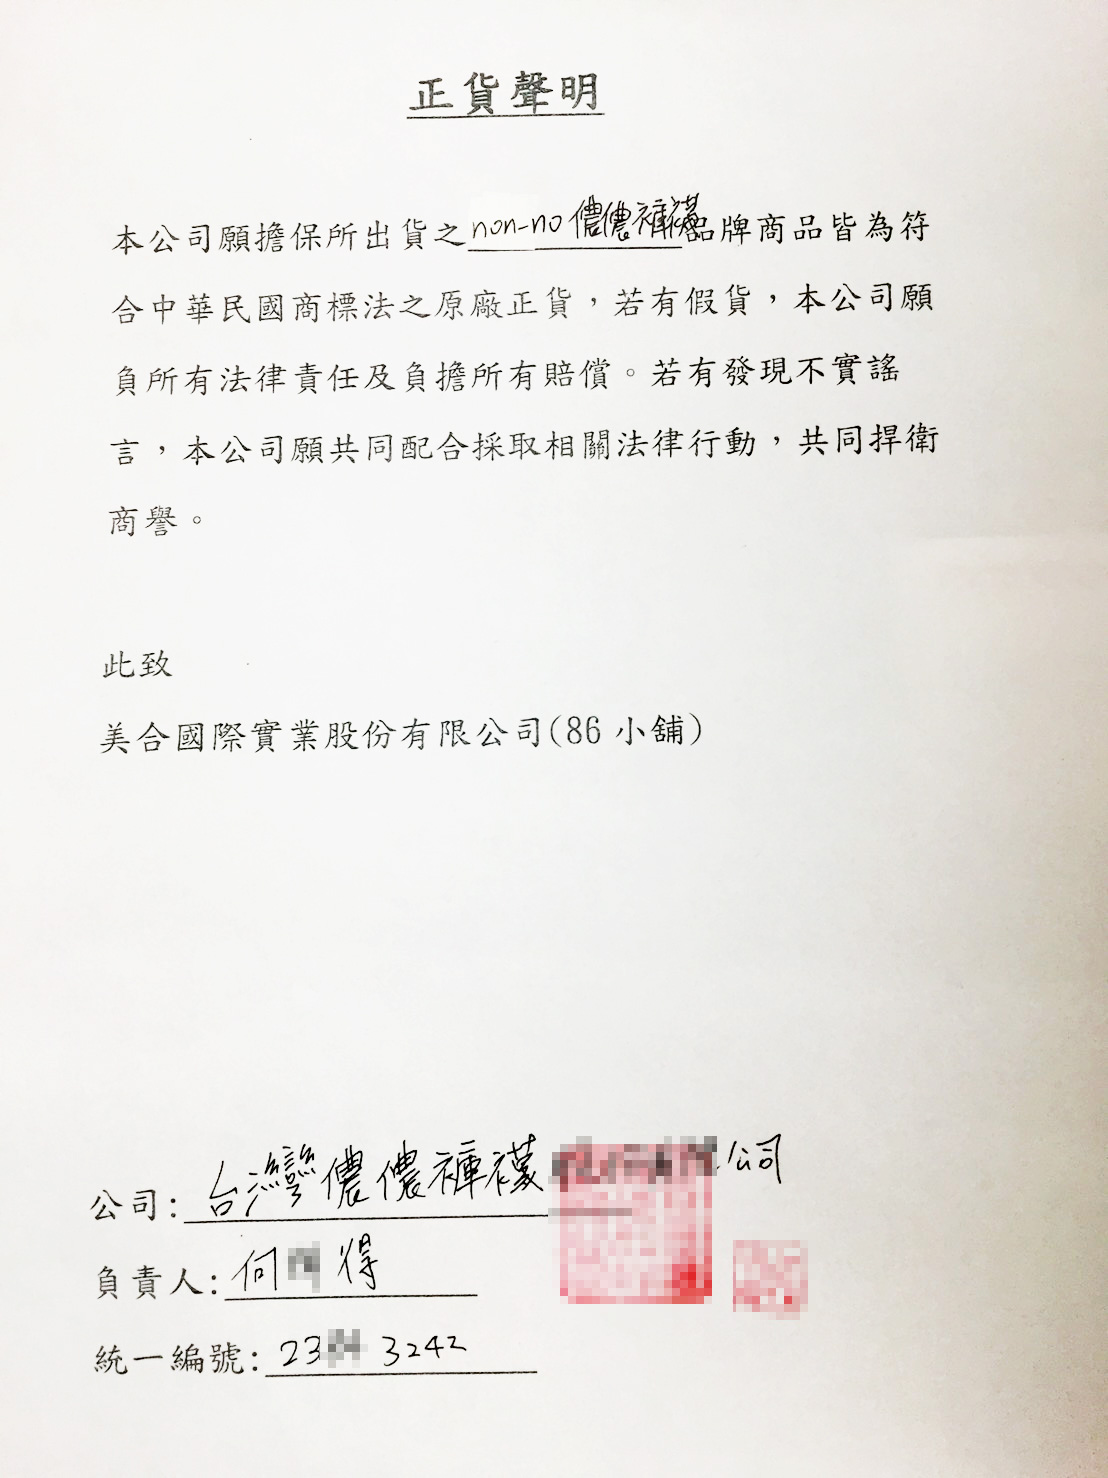 正貨聲明
本公司願擔保所出貨之non-no 儂儂褲襪品牌商品皆為符
合中華民國商標法之原廠正貨，若有假貨，本公司願
負所有法律責任及負擔所有賠償。若有發現不實謠
言，本公司願共同配合採取相關法律行動，共同捍衛
商譽。
此致
美合國際實業股份有限公司(86 小舖)
公司:台灣儂儂褲襪 公司
負責人:何 得
統一編號:23 3242